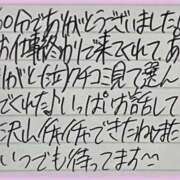 60分でありがとうございました！
お仕事終わりで来てくれてあ
りがとう クチコミ見て選ん
でくれた いっぱいお話して
沢山イチャイチャできたねまた
いつでも待ってます〜